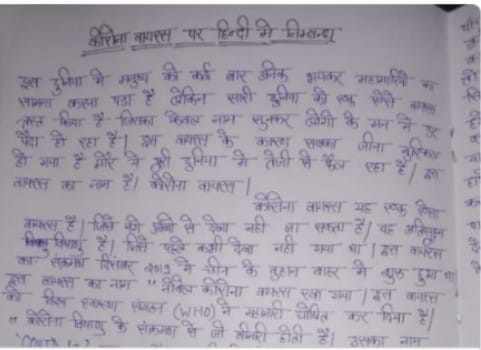 कोरोना वायरस पर हिन्दी में निबन्ध
इस दुनिया में मनुष्य को कई बार अनेक भयंकर महामारियों का
सामना करना पड़ा है लेकिन सारी दुनिया को एक ऐसे वायरस
त्रस्त किया है जिसका केवल नाम सुनकर लोगो के मन में डर
पैदा हो रहा है। इस वायरस के कारण सबका जीना मुश्किल
हो गया है और ये पूरी दुनिया में तेजी से फैल रहा है। इस
वायरस का नाम है। कोरोना वायरस।
कोरोना वायरस यह एक ऐसा
वायरस है। जिसे नंगी आँखो से देखा नही जा सकता है। यह अतिसूक्ष्म
विषाणु है। जिसे पहले कभी देखा नही गया था। इस वायरस
का संक्रमण दिसंबर 2019 में चीन के वुहान शहर में शुरू हुआ था
इस वायरस का नाम "नोवेल कोरोना वायरस रखा गया। इस वायरस
को विश्व स्वास्थ्य संगठन (WHO) ने महामारी घोषित कर दिया है।
"कोरोना विषाणु के संक्रमण से जो बीमारी होती है। उसका नाम